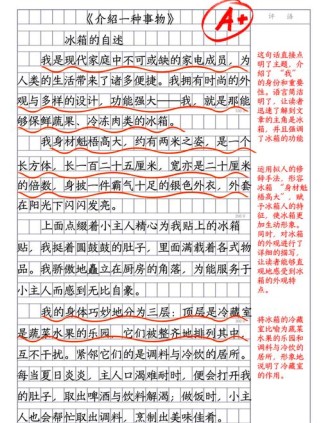 《介绍一种事物》
A+
评语
冰箱的自述
我是现代家庭中不可或缺的家电成员，为
人类的生活带来了诸多便捷。我拥有时尚的外
观与多样的设计，功能强大——我，就是那能
够保鲜蔬果、冷冻肉类的冰箱。
我身材魁梧高大，约有两米之姿，是一个
长方体，长一百二十五厘米，宽亦是二十厘米
的倍数，身披一件霸气十足的银色外衣，外套
在阳光下闪闪发亮。
上面点缀着小主人精心为我贴上的冰箱
贴，我挺着圆鼓鼓的肚子，里面满载着各式物
品。我骄傲地矗立在厨房的角落，为能服务于
小主人而感到无比自豪。
我的身体巧妙地分为三层：顶层是冷藏室
是蔬菜水果的乐园，它们被整齐地排列其中，
互不干扰。紧邻它们的是调料与冷饮的居所。
每当夏日炎炎，主人口渴难耐时，便会打开我
的肚子，取出啤酒与饮料解渴；做饭时，小主
人也会帮忙取出调料，烹制出美味佳肴。
这句话直接点
明了主题，介
绍了“我”
的身份和重要
性。语言简洁
明了，让读者
迅速了解到文
章的主角是冰
箱，并且强调
了冰箱的功能
运用拟人的修
辞手法，形容
冰箱“身材魁
梧高大”，赋
予冰箱人的特
征，使冰箱更
加生动形象。
同时，对冰箱
的外观进行了
详细的描写，
让读者能够直
观地感受到冰
箱的外观特
点。
将冰箱的冷藏
室比喻为蔬菜
水果的乐园
和调料与冷饮
的居所，形象地
说明了冷藏室
的作用。